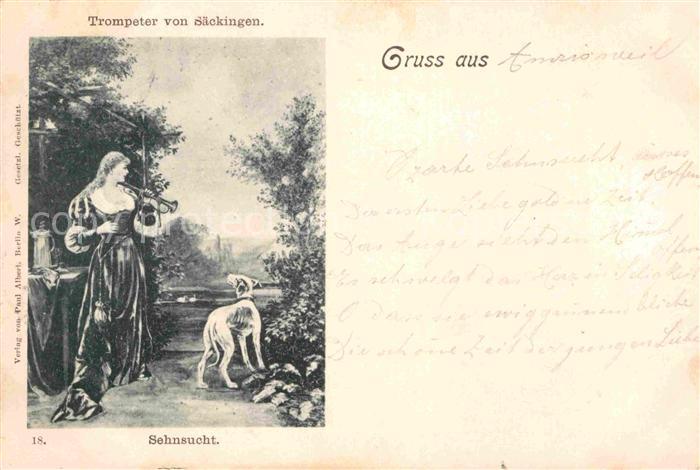 Trompeter von Säckingen.
Gruss aus Amrisweil
O zarte Sehnsucht süsses Hoffen
Der ersten Liebe goldne Zeit.
Das Auge sieht den Himmel offen
Es schwelgt das Herz in
O dass sie ewig grünen bliebe
Die schöne Zeit der jungen Liebe
Verlag von Paul Albert, Berlin W. Gesetzl. Geschützt.
18.
Sehnsucht.